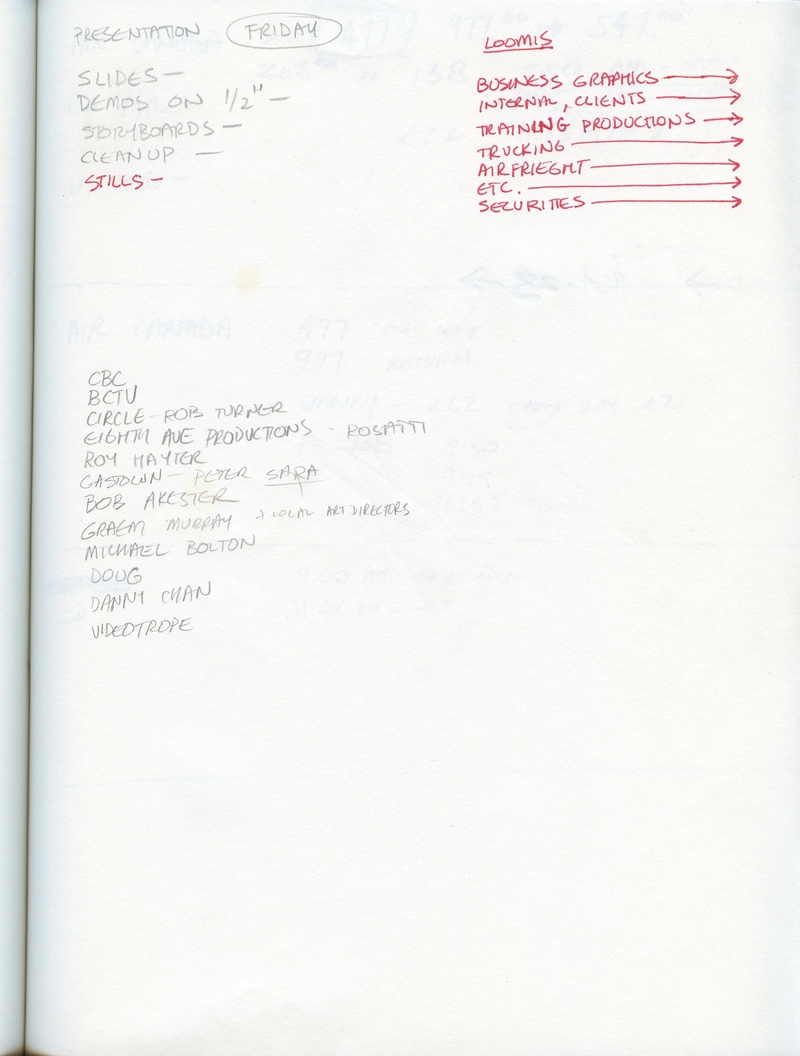 PRESENTATION FRIDAY
SLIDES —
DEMOS ON 1/2" —
STORYBOARDS —
CLEANUP —
STILLS —
LOOMIS
BUSINESS GRAPHICS →
INTERNAL, CLIENTS →
TRAINING PRODUCTIONS →
TRUCKING →
AIRFRIEGHT →
ETC. →
SECURITIES →
CBC
BCTV
CIRCLE - ROB TURNER
EIGHTH AVE PRODUCTIONS - ROSATTI
ROY HAYTER
GASTOWN - PETER SARA
BOB AKESTER
GRAEM MURRAY → LOCAL ART DIRECTORS
MICHAEL BOLTON
DOUG
DANNY CHAN
VIDEOTROPE
AIR CANADA 477
977 RETURN